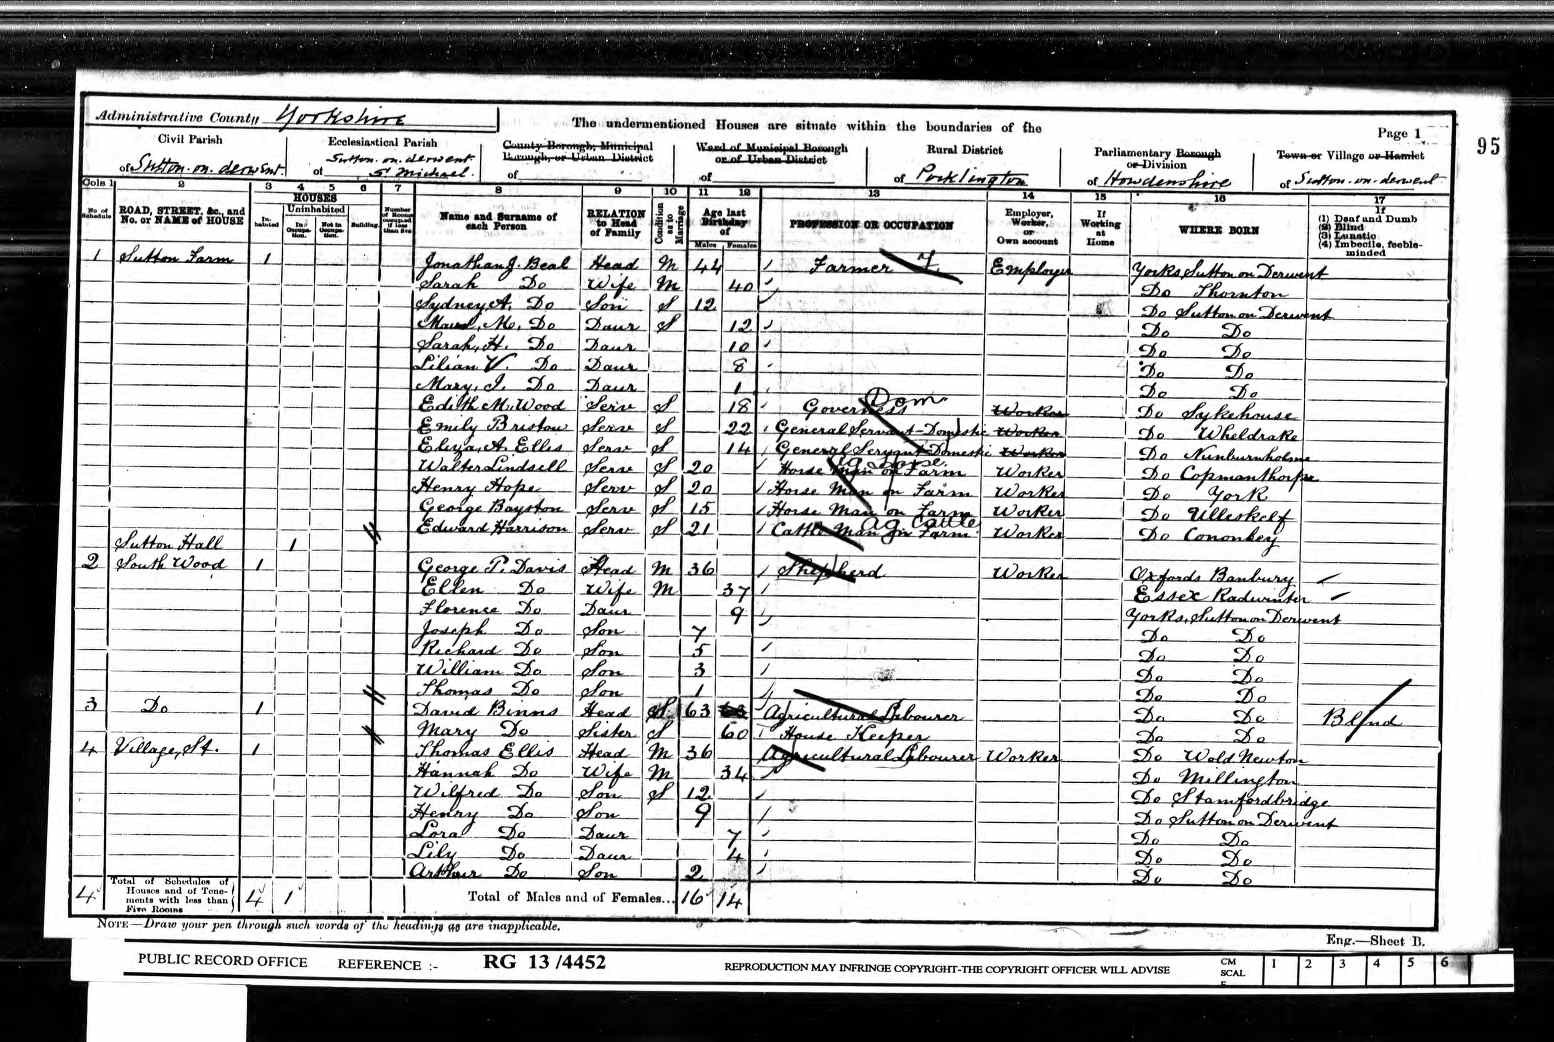 Administrative County Yorkshire
The undermentioned Houses are situate within the boundaries of the
Page 1
95
Civil Parish of Sutton.on.derwent.
Ecclesiastical Parish of Sutton.on.derwent St Michael.
County Borough, Municipal Borough, or Urban District of
Ward of Municipal Borough or of Urban District of
Rural District of Pocklington
Parliamentary Borough or Division of Howdenshire
Town or Village or Hamlet of Sutton-on-derwent
Cols 1 2 3 4 5 6 7 8 9 10 11 12 13 14 15 16 17
No. of Schedule
ROAD, STREET, &c., and No. or NAME of HOUSE
HOUSES
Inhabited
Uninhabited
In Occupation.
Not in Occupation.
Building.
Number of Rooms occupied if less than five
Name and Surname of each Person
RELATION to Head of Family
Condition as to Marriage
Age last Birthday of
Males Females
PROFESSION OR OCCUPATION
Employer, Worker, or Own account
If Working at Home
WHERE BORN
If (1) Deaf and Dumb (2) Blind (3) Lunatic (4) Imbecile, feeble-minded
1 Sutton Farm 1 Jonathan J. Beal Head M 44 Farmer Employer Yorks, Sutton on Derwent
Sarah Do Wife M 40 Do Thornton
Sydney, A. Do Son S 12 Do Sutton on Derwent
Maud, M. Do Daur S 12 Do Do
Sarah, H. Do Daur 10 Do Do
Lilian V. Do Daur 8 Do Do
Mary, I. Do Daur 1 Do Do
Edith M. Wood Serv S 18 Governess Dom Worker Do Sykehouse
Emily Bristow Serv S 22 General Servant-Domestic Worker Do Wheldrake
Eliza, A. Ellis Serv S 14 General Servant Domestic Worker Do Nunburnholme
Walter Lindsell Serv S 20 Horse Man on Farm Worker Do Copmanthorpe
Henry Hope Serv S 20 Horse Man on Farm Worker Do York
George Bayston Serv S 15 Horse Man on Farm Worker Do Ulleskelf
Edward Harrison Serv S 21 Cattle Man on Farm Ag Cattle Worker Do Cononley
Sutton Hall 1
2 South Wood 1 George T. Davis Head M 36 Shepherd Worker Oxfords Banbury
Ellen Do Wife M 37 Essex Radwinter
Florence Do Daur 9 Yorks, Sutton on Derwent
Joseph Do Son 7 Do Do
Richard Do Son 5 Do Do
William Do Son 3 Do Do
Thomas Do Son 1 Do Do
3 Do 1 David Binns Head S 63 63 Agricultural Labourer Do Do Blind
Mary Do Sister S 60 House Keeper Do Do
4 Village, St. 1 Thomas Ellis Head M 36 Agricultural Labourer Worker Do Wold Newton
Hannah Do Wife M 34 Do Millington
Wilfred Do Son S 12 Do Stamfordbridge
Henry Do Son 9 Do Sutton on Derwent
Lora Do Daur 7 Do Do
Lily Do Daur 4 Do Do
Arthur Do Son 2 Do Do
4 Total of Schedules of Houses and of Tenements with less than Five Rooms 4 1 Total of Males and of Females... 16 14
NOTE—Draw your pen through such words of the headings as are inapplicable.
Eng.—Sheet B.
PUBLIC RECORD OFFICE REFERENCE :- RG 13/4452 REPRODUCTION MAY INFRINGE COPYRIGHT-THE COPYRIGHT OFFICER WILL ADVISE
CM SCALE 1 2 3 4 5 6